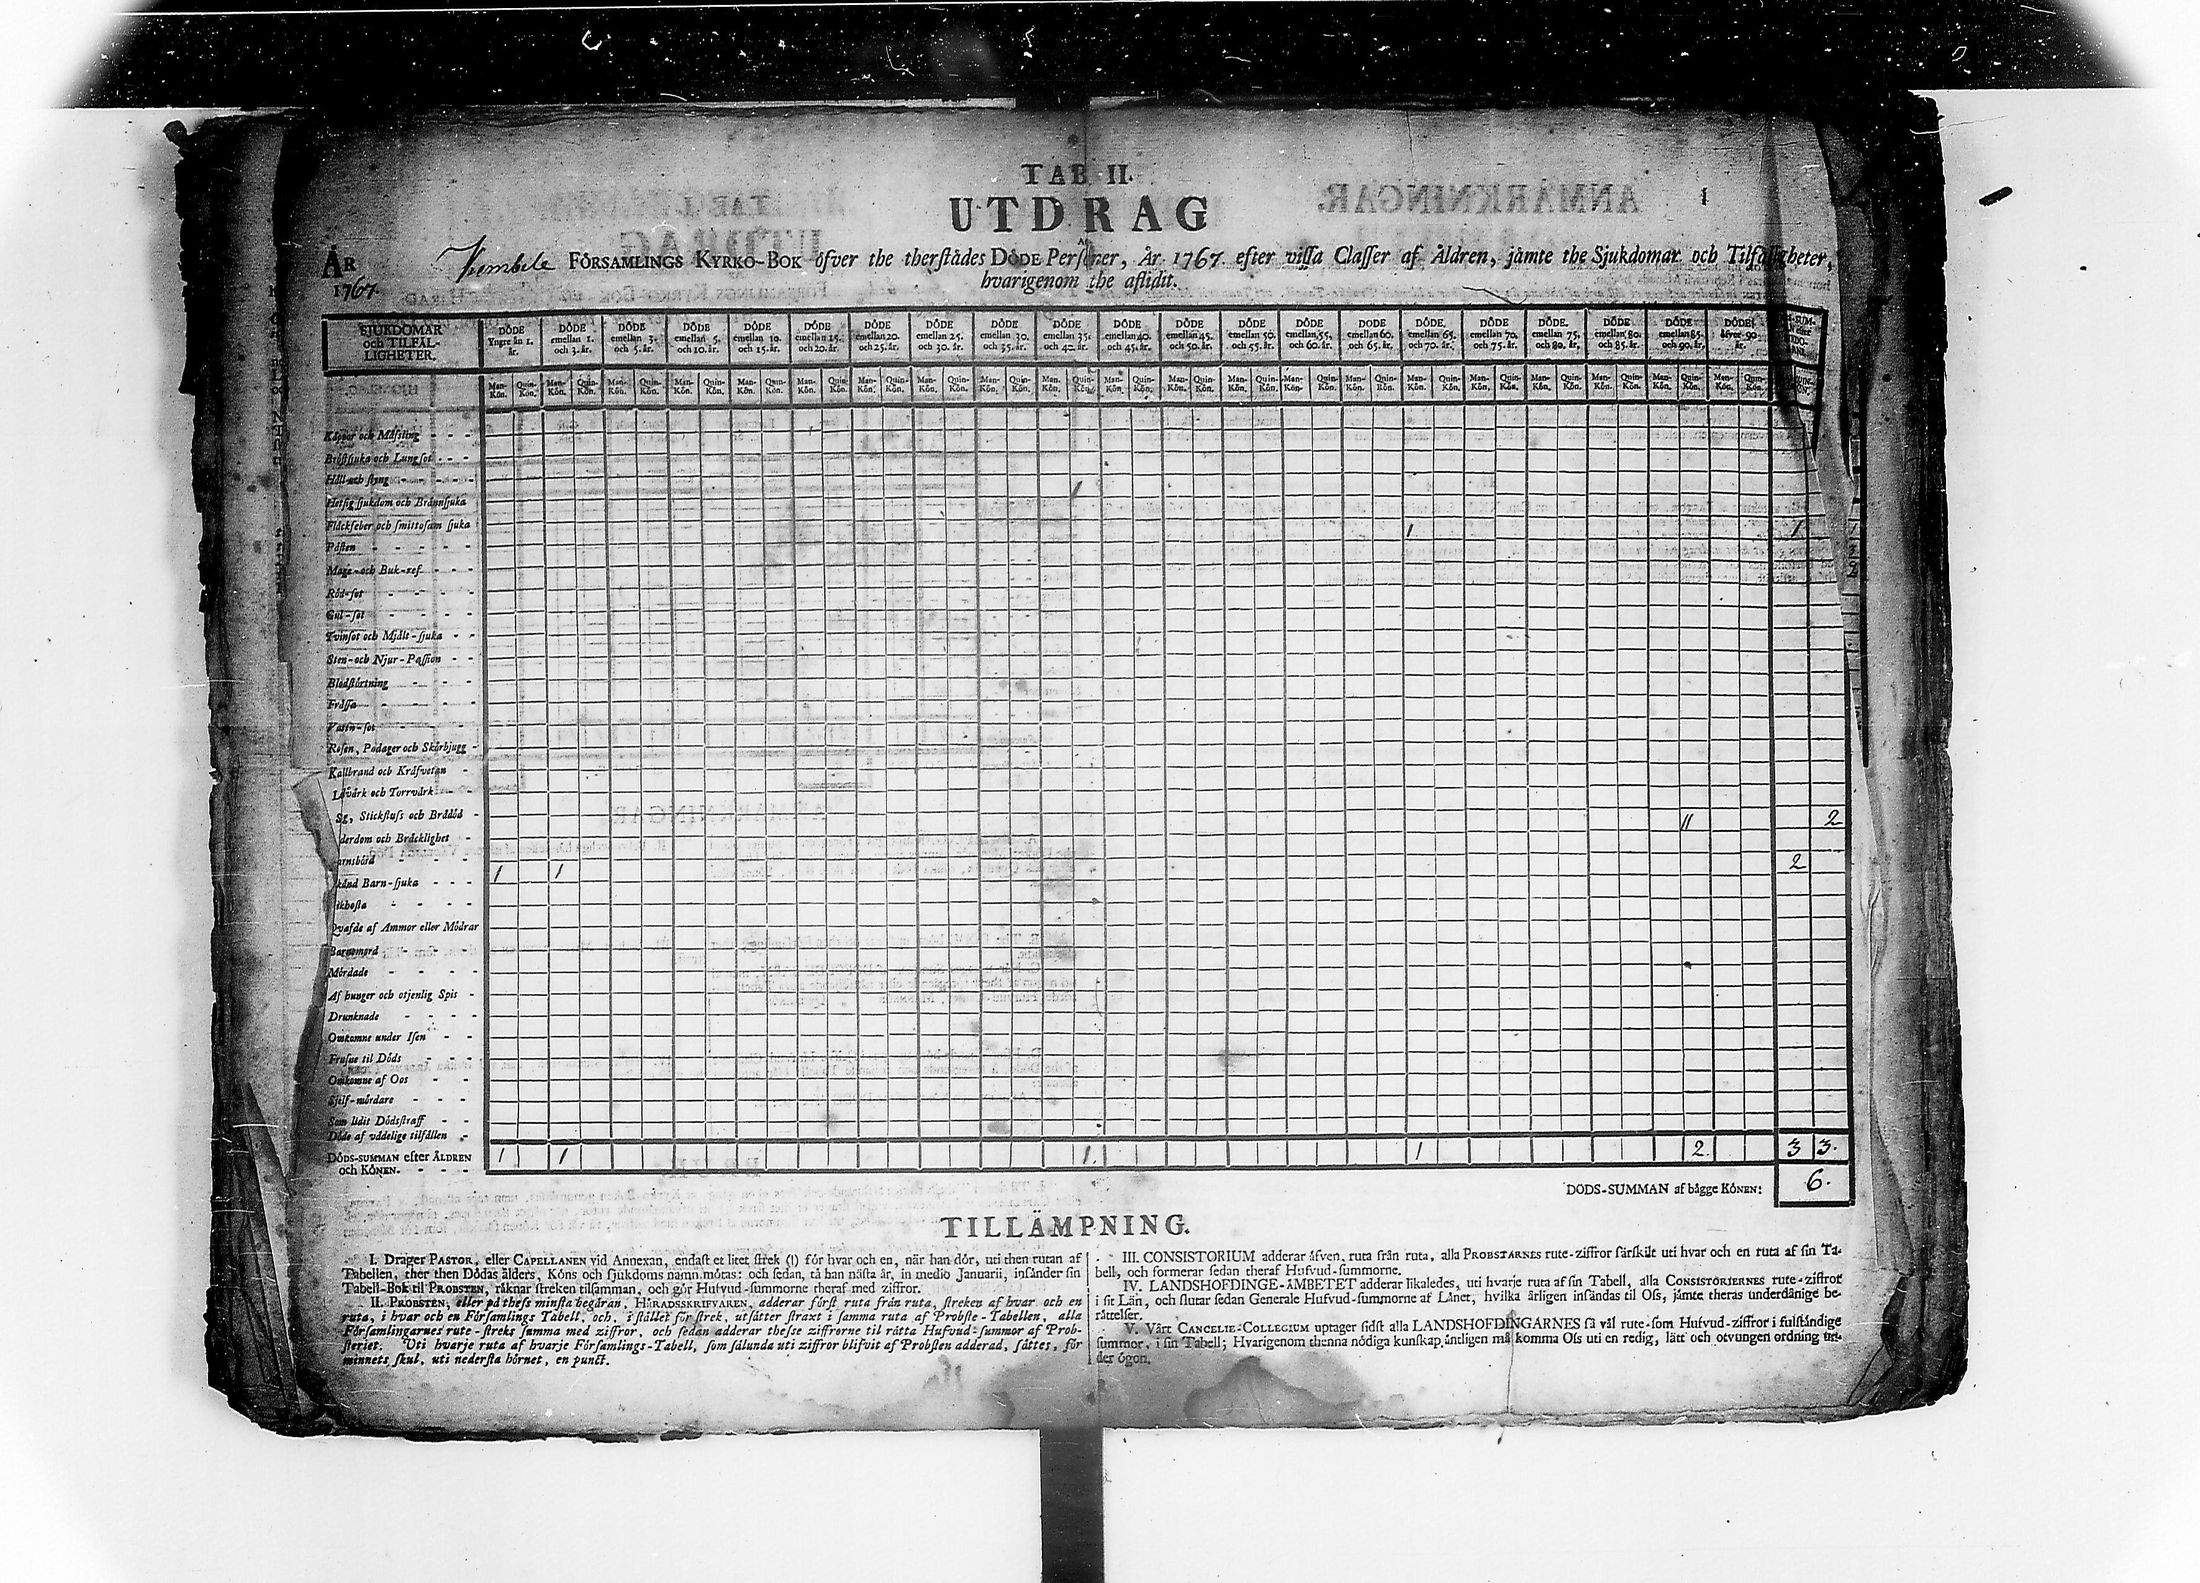 TAB II.
UTDRAG
ÅR 1767. FÖRSAMLINGS KYRKO-BOK öfver the therstådes DÖDE Personer, År 1767 efter vissa Classer af Åldren, jämte the Sjukdomar och Tilfälligheter,
hvarigenom the aflidit.
SJUKDOMAR och TILFÄLLIGHETER.
DÖDE Yngre än 1. år.
DÖDE emellan 1. och 3. år.
DÖDE emellan 3. och 5. år.
DÖDE emellan 5. och 10. år.
DÖDE emellan 10. och 15. år.
DÖDE emellan 15. och 20. år.
DÖDE emellan 20. och 25. år.
DÖDE emellan 25. och 30. år.
DÖDE emellan 30. och 35. år.
DÖDE emellan 35. och 40. år.
DÖDE emellan 40. och 45. år.
DÖDE emellan 45. och 50. år.
DÖDE emellan 50. och 55. år.
DÖDE emellan 55. och 60. år.
DÖDE emellan 60. och 65. år.
DÖDE emellan 65. och 70. år.
DÖDE emellan 70. och 75. år.
DÖDE emellan 75. och 80. år.
DÖDE emellan 80. och 85. år.
DÖDE emellan 85. och 90. år.
DÖDE öfver 90 år.
Man-Kön. Quin-Kön. Man-Kön. Quin-Kön. Man-Kön. Quin-Kön. Man-Kön. Quin-Kön. Man-Kön. Quin-Kön. Man-Kön. Quin-Kön. Man-Kön. Quin-Kön. Man-Kön. Quin-Kön. Man-Kön. Quin-Kön. Man-Kön. Quin-Kön. Man-Kön. Quin-Kön. Man-Kön. Quin-Kön. Man-Kön. Quin-Kön. Man-Kön. Quin-Kön. Man-Kön. Quin-Kön. Man-Kön. Quin-Kön. Man-Kön. Quin-Kön. Man-Kön. Quin-Kön. Man-Kön. Quin-Kön. Man-Kön. Quin-Kön. Man-Kön. Quin-Kön.
Koppor och Mässling - - -
Bröstsjuka och Lungsot - - -
Håll och styng - - - - -
Hetsig sjukdom och Brännsjuka 1
Fläckfeber och smittosam sjuka 1 1
Pästen - - - - -
Mage- och Buk-ref. - - - 2
Röd-sot - - - -
Gul-sot - - - -
Tvinsot och Mjält-sjuka - -
Sten- och Njur-Passion - -
Blodstörtning - - -
Frossa - - - - -
Vatn-sot - - - -
Rosen, Podager och Skörbjugg -
Kallbrand och Kräfvetan -
Ledvärk och Torrvärk - -
Sg, Stickfluss och Brådöd -
derdom och Bräcklighet - 11 2
arnsbörd - - - -
känd Barn-sjuka - - - 1 1 2
ikhosta - - - -
Qvafde af Ammor eller Mödrar
Barnamord - - - -
Mördade - - - - -
Af hunger och otjenlig Spis -
Drunknade - - - -
Omkomne under Isen - -
Frusne til Döds - - -
Omkomne af Oos - -
Sjelf-mördare - - -
Som lidit Dödsstraff - -
Döde af vådelige tilfällen -
DÖDS-SUMMAN efter ÅLDREN och KÖNEN. - - - 1 1 1. 1 2 3 3.
DÖDS-SUMMAN af bägge KÖNEN: 6.
TILLÄMPNING.
I. Drager PASTOR, eller CAPELLANEN vid Annexan, endast et litet strek (1) för hvar och en, när han dör, uti then rutan af
Tabellen, ther then Dödas ålders, Köns och sjukdoms namn mötas: och sedan, tå han nästa år, in medio Januarii, insänder sin
Tabell-Bok til PROBSTEN, räknar streken tilsamman, och gör Hufvud-summorne theraf med ziffror.
II. PROBSTEN, eller på thess minsta begäran, HÄRADSSKRIFVAREN, adderar först, ruta från ruta, streken af hvar och en
ruta, i hvar och en Församlings Tabell, och, i stället för strek, utsätter straxt i samma ruta af Probste-Tabellen, alla
Församlingarnes rute-streks summa med ziffror, och sedan adderar thesse ziffrorne til rätta Hufvud-summor af Prob-
steriet. Uti hvarje ruta af hvarje Församlings-Tabell, som sålunda uti ziffror blifvit af Probsten adderad, sättes, för
minnets skul, uti nedersta hörnet, en punct.
III. CONSISTORIUM adderar äfven, ruta från ruta, alla PROBSTARNES rute-ziffror särskilt uti hvar och en ruta af sin Ta-
bell, och formerar sedan theraf Hufvud-summorne.
IV. LANDSHOFDINGE-ÄMBETET adderar likaledes, uti hvarje ruta af sin Tabell, alla CONSISTORIERNES rute-ziffror
i sit Län, och slutar sedan Generale Hufvud-summorne af Länet, hvilka årligen insändas til Oss, jämte theras underdånige be-
rättelser.
V. Vårt CANCELIE-COLLEGIUM uptager sidst alla LANDSHOFDINGARNES så väl rute- som Hufvud-ziffror i fulständige
summor, i sin Tabell; Hvarigenom thenna nödiga kunskap äntligen må komma Oss uti en redig, lätt och otvungen ordning un-
der ögon.